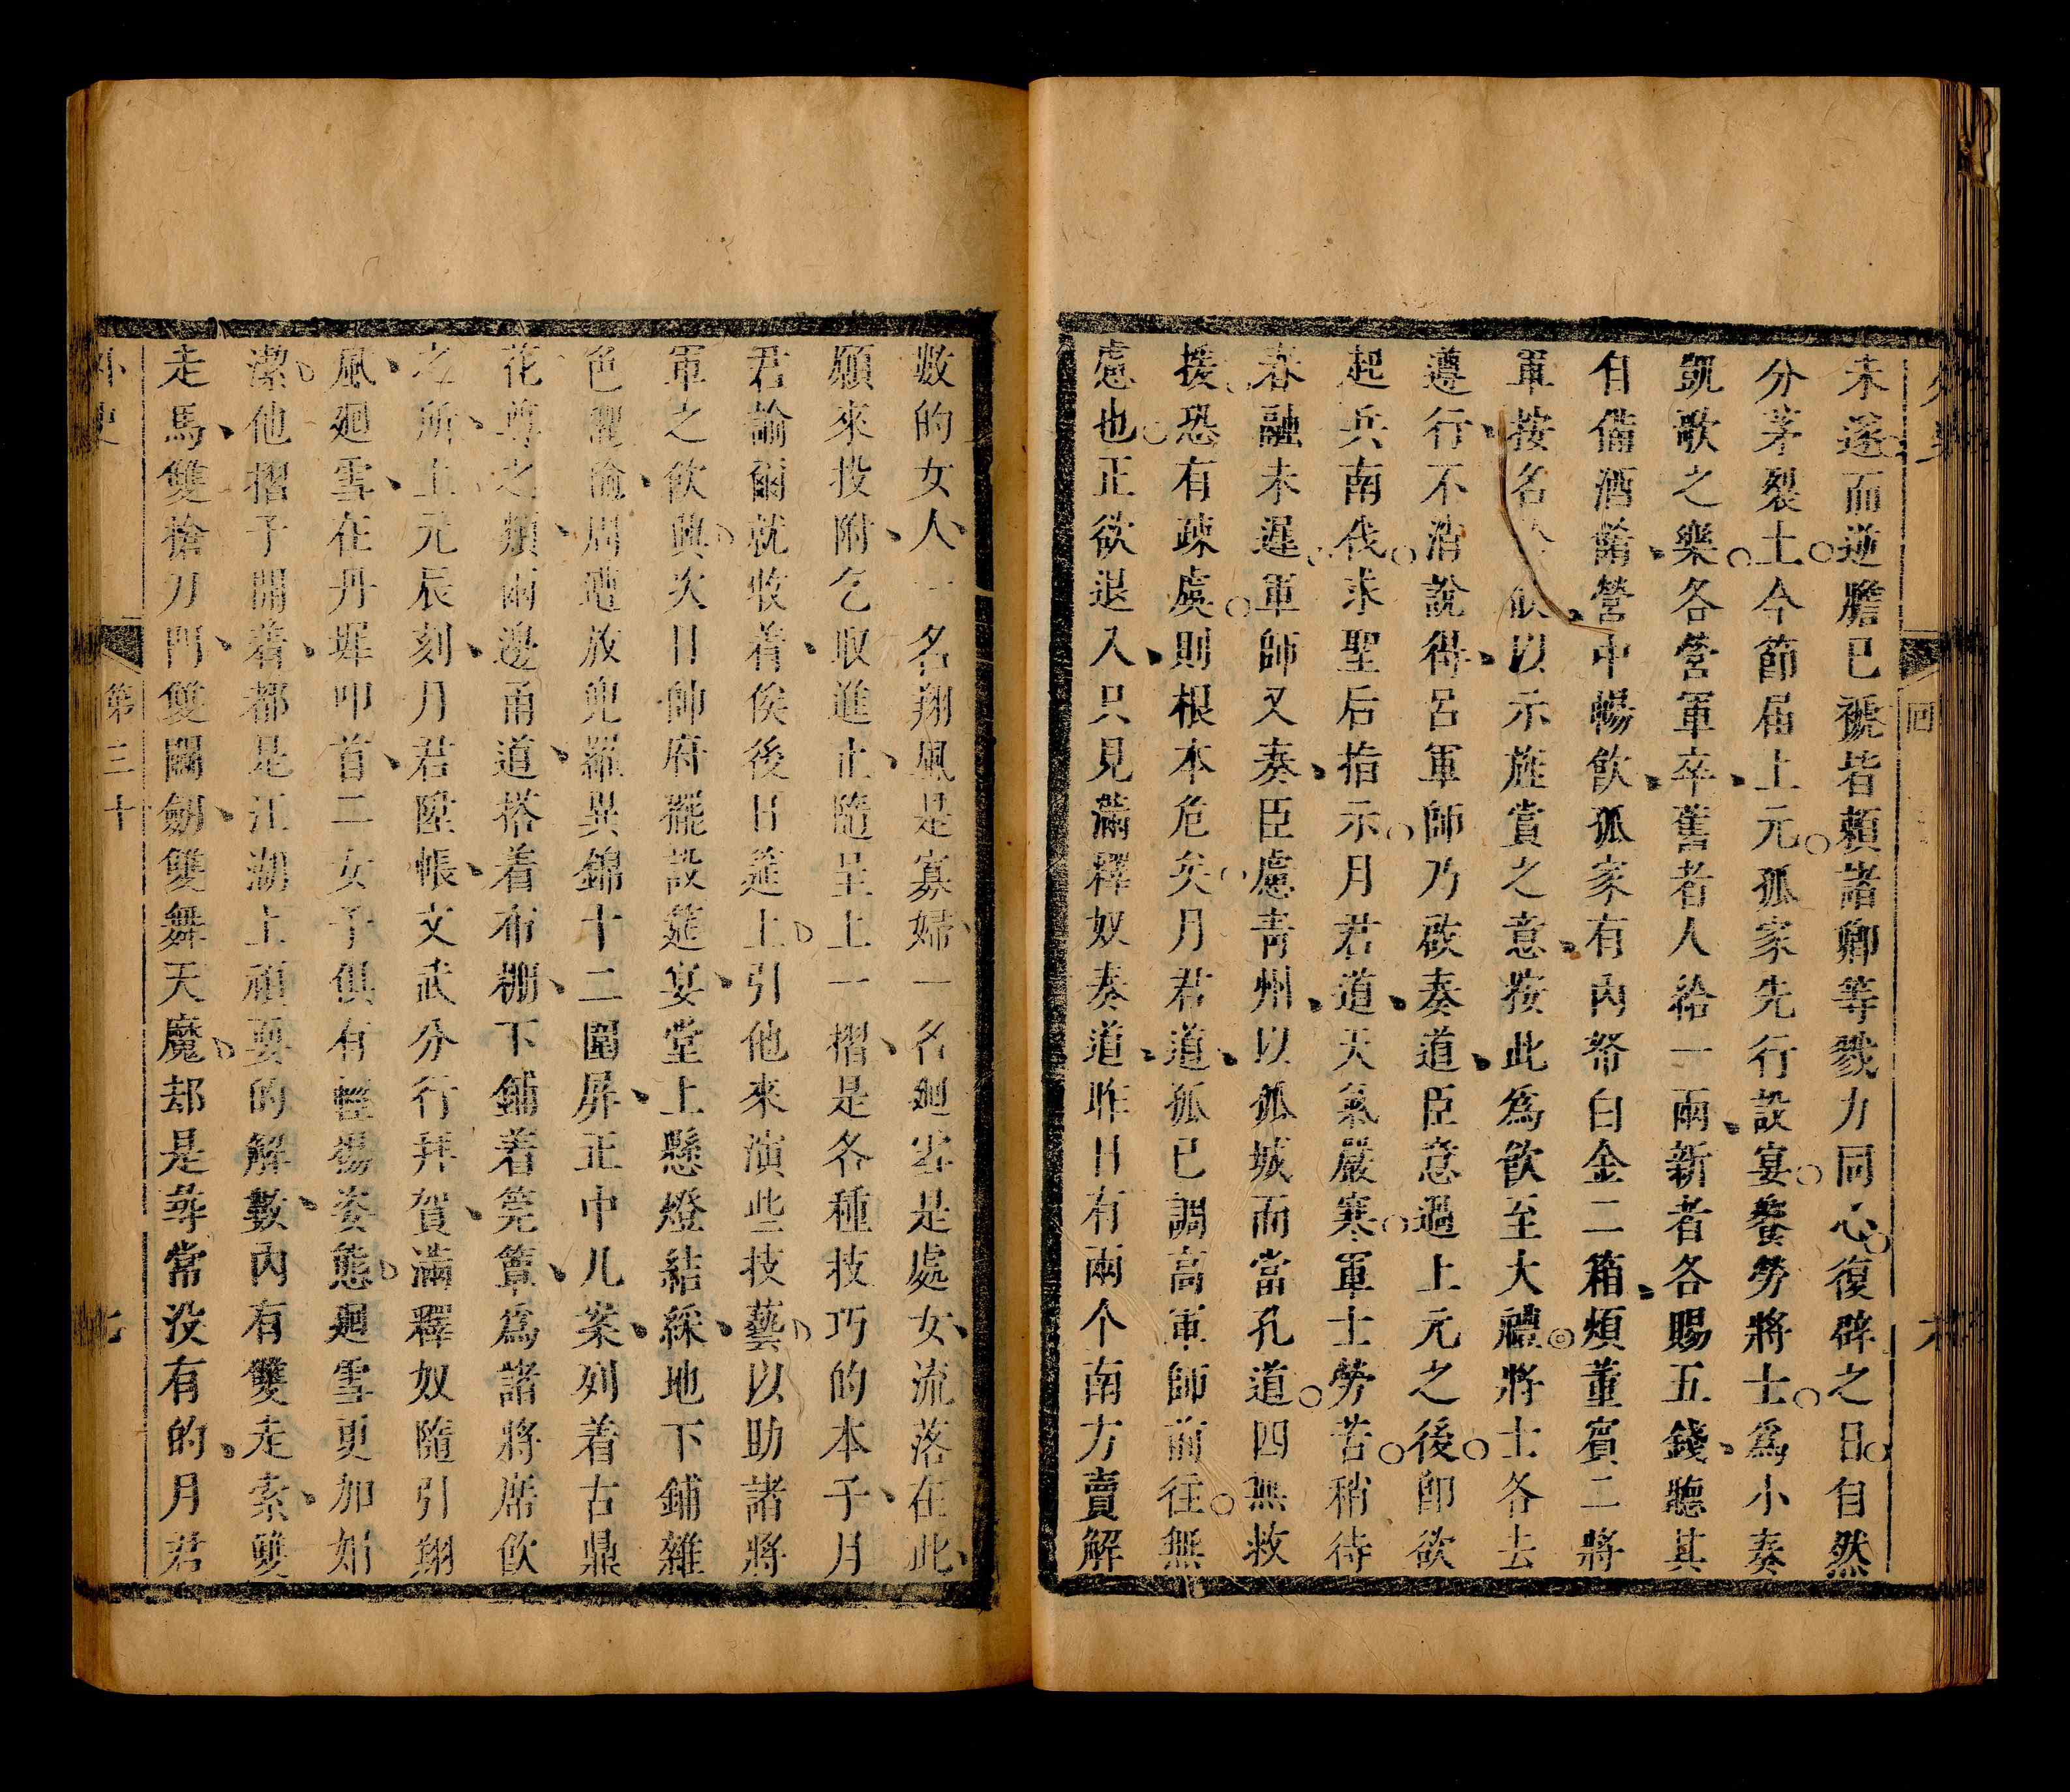 未遂而逆膽已褫皆賴諸卿等戮力同心復辟之日自然
分茅裂土今節届上元孤家先行設宴饗勞將士爲小奏
凱歌之樂各營軍卒舊者人給一兩新者各賜五錢聽其
自備酒餚營中暢飲孤家有內帑白金二箱煩董賓二將
軍按名以示旌賞之意按此爲飲至大禮將士各去
遵行不消說得呂軍師乃啟奏道臣意過上元之後卽欲
起兵南伐求聖后指示月君道天氣嚴寒軍士勞苦稍待
春融未遲軍師又奏臣慮靑州以孤城而當孔道四無救
援恐有疎虞則根本危矣月君道孤已調高軍師前往無
慮也正欲退入只見滿釋奴奏道昨日有兩个南方賣解
數的女人一名翔風是寡婦一名廻雪是處女流落在此
願來投附乞收進止隨呈上一摺是各種技巧的本子月
君諭爾就收着俟後日筵上引他來演些技藝以助諸將
軍之飲興次日帥府擺設筵宴堂上懸燈結綵地下鋪雜
色氍毹周遭放兜羅異錦十二圍屏正中几案列着古鼎
花尊之類兩邊甬道搭着布棚下鋪着筦簟爲諸將席飲
之所上元辰刻月君陞帳文武分行拜賀滿釋奴隨引翔
風廻雪在丹墀叩首二女子俱有輕揚姿態廻雪更加娟
潔他摺子開着都是江湖上頑耍的解數內有雙走索雙
走馬雙搶刀門雙鬬劒雙舞天魔却是尋常没有的月君
外史
第三十
七